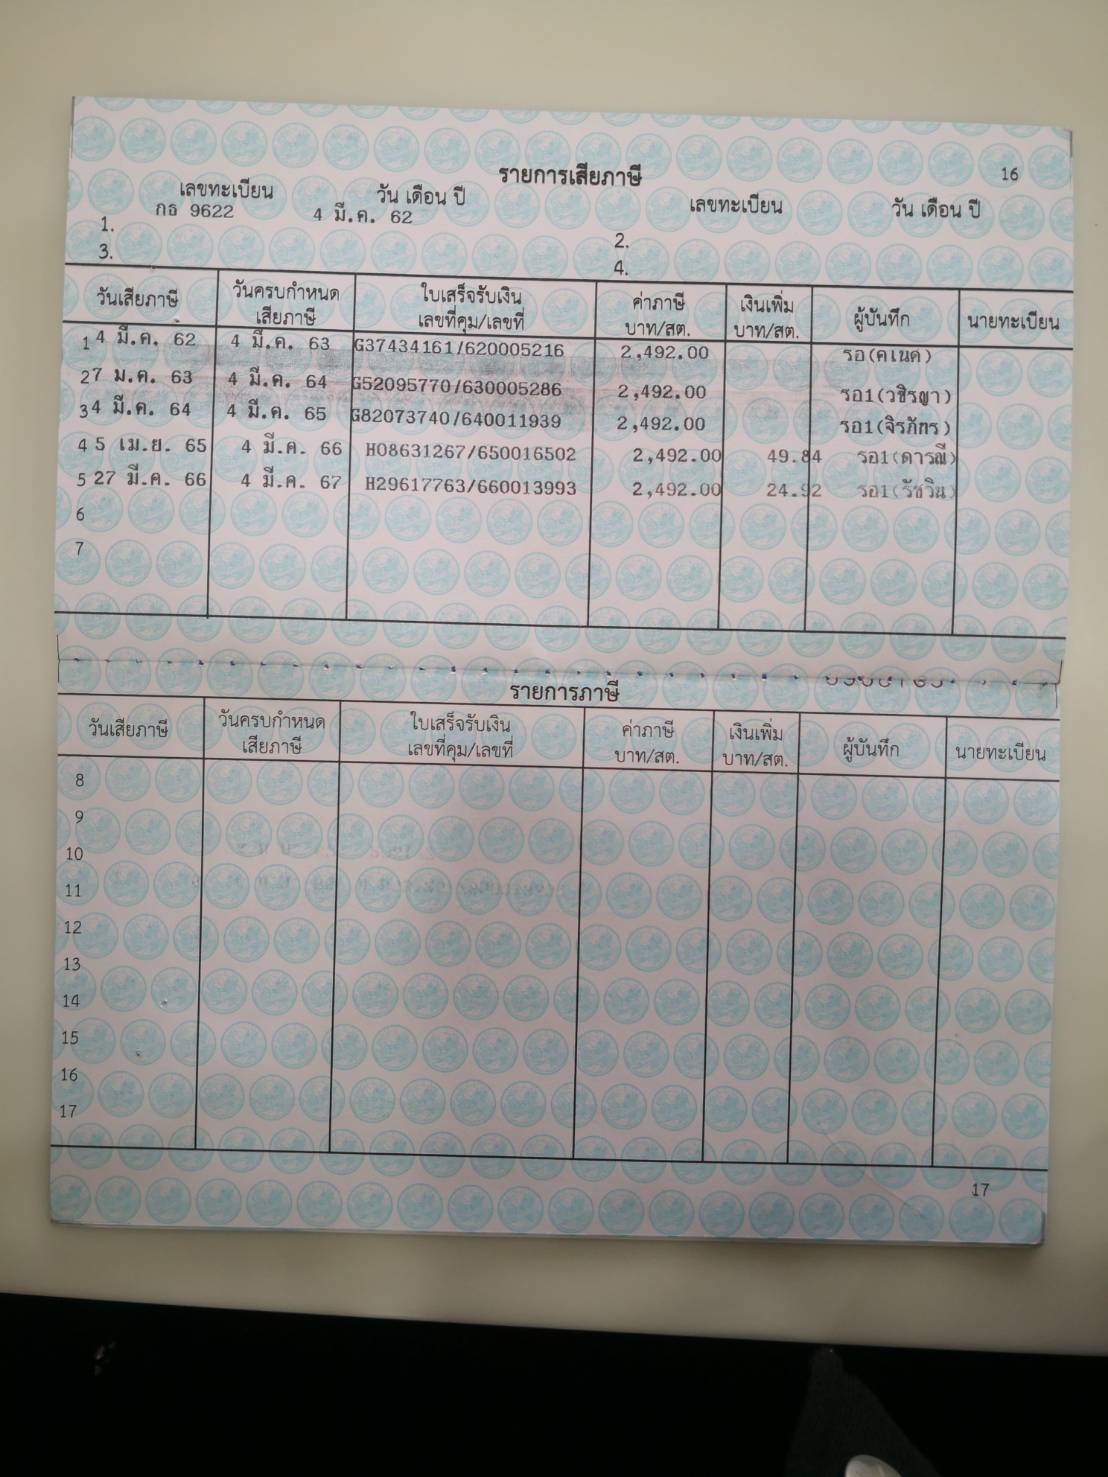 รายการเสียภาษี 16
เลขทะเบียน วัน เดือน ปี เลขทะเบียน วัน เดือน ปี
1. กธ 9622 4 มี.ค. 62 2.
3. 4.
วันเสียภาษี วันครบกำหนดเสียภาษี ใบเสร็จรับเงิน เลขที่คุม/เลขที่ ค่าภาษี บาท/สต. เงินเพิ่ม บาท/สต. ผู้บันทึก นายทะเบียน
1 4 มี.ค. 62 4 มี.ค. 63 G37434161/620005216 2,492.00 รอ(คเนค)
2 7 ม.ค. 63 4 มี.ค. 64 G52095770/630005286 2,492.00 รอ1(วชิรญา)
3 4 มี.ค. 64 4 มี.ค. 65 G82073740/640011939 2,492.00 รอ1(จิรภัทร)
4 5 เม.ย. 65 4 มี.ค. 66 H08631267/650016502 2,492.00 49.84 รอ1(ดารณี)
5 27 มี.ค. 66 4 มี.ค. 67 H29617763/660013993 2,492.00 24.92 รอ1(รัชวิน)
6
7
รายการภาษี
วันเสียภาษี วันครบกำหนดเสียภาษี ใบเสร็จรับเงิน เลขที่คุม/เลขที่ ค่าภาษี บาท/สต. เงินเพิ่ม บาท/สต. ผู้บันทึก นายทะเบียน
8
9
10
11
12
13
14
15
16
17
17